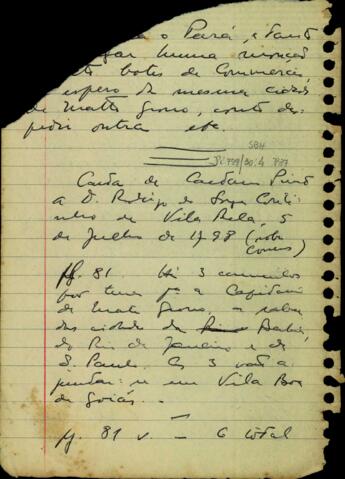 o Pará, e
botes de Commercio,
espero da mesma cidade
de Matto Grosso, conto des-
pedir outra etc.
SBH
Carta de Caetano Pinto
a D. Rodrigo de Souza Couti
nho de Vila Bela, 5
de Julho de 1798
pg. 81. Há 3 caminhos
por terra pª a Capitania
de Mato Grosso - a saber
das cidades da Bahia,
do Rio de Janeiro e de
S. Paulo. Os 3 vão a
juntar-se em Vila Boa
de Goiás. -
pg. 81 v. - G total